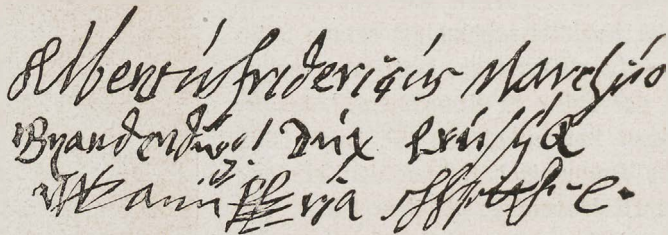 Albertus fridericus Marchio
Brandenburg: Dux Prussiæ
Manu ppria